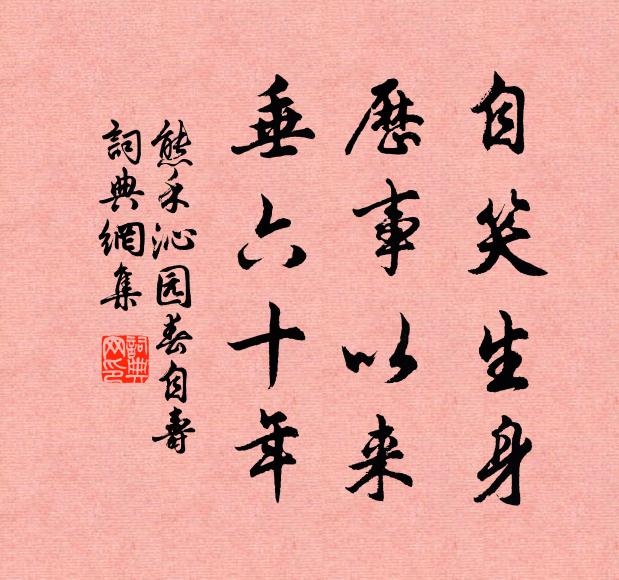 自笑生身
歷事以来
垂六十年
熊禾沁园春自壽
詞典網集
詞典网印